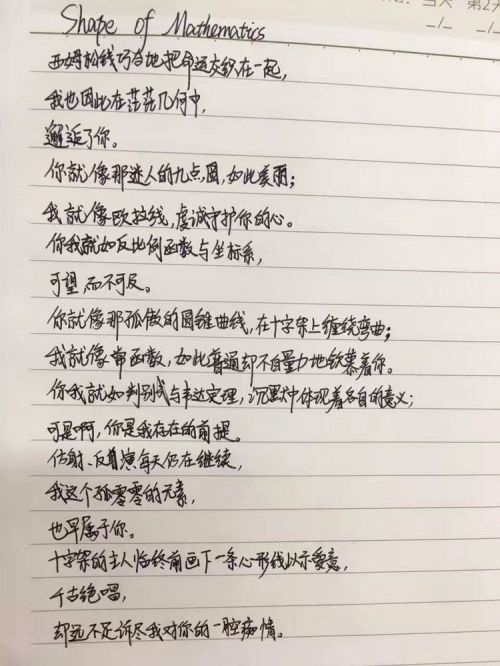 Shape of Mathematics
西姆松线巧合地把命运交织在一起,
我也因此在茫茫几何中,
邂逅了你。
你就像那迷人的九点圆,如此美丽;
我就像欧拉线,虔诚守护你的心。
你我就如反比例函数与坐标系,
可望而不可及。
你就像那孤傲的圆锥曲线,在十字架上缠绕弯曲;
我就像常函数,如此普通却不自量力地钦慕着你。
你我就如判别式与韦达定理,沉默中体现着各自的意义;
可是啊,你是我存在的前提。
仿射、反演每天仍在继续,
我这个孤零零的元素,
也早属于你。
十字架的主人临终前画下一条心形线以示爱意,
千古绝唱,
却远不足诉尽我对你的一腔痴情。